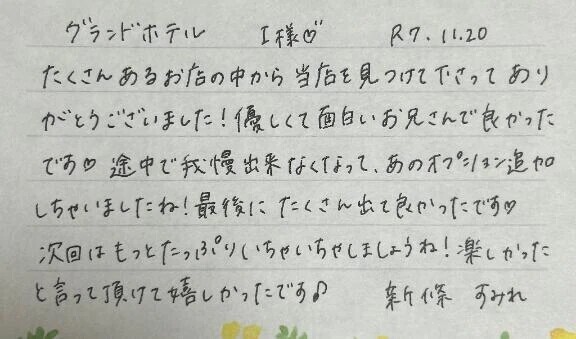 グランドホテル I様♡ R7.11.20
たくさんあるお店の中から当店を見つけて下さってあり
がとうございました!優しくて面白いお兄さんで良かった
です♡ 途中で我慢出来なくなって、あのオプション追加
しちゃいましたね!最後にたくさん出て良かったです♡
次回はもっとたっぷりいちゃいちゃしましょうね!楽しかった
と言って頂けて嬉しかったです♪ 新條 すみれ